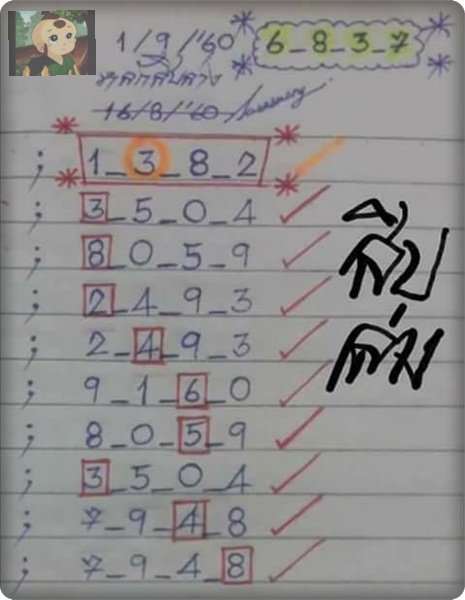 1/9/'60
6_8_3_7
หลักสิบล่าง
16/8/'60
; 1_3_8_2
; 3_5_0_4
; 8_0_5_9
; 2_4_9_3
; 2_4_9_3
; 9_1_6_0
; 8_0_5_9
; 3_5_0_4
; 7_9_4_8
; 7_9_4_8
สิบ
ล่าง